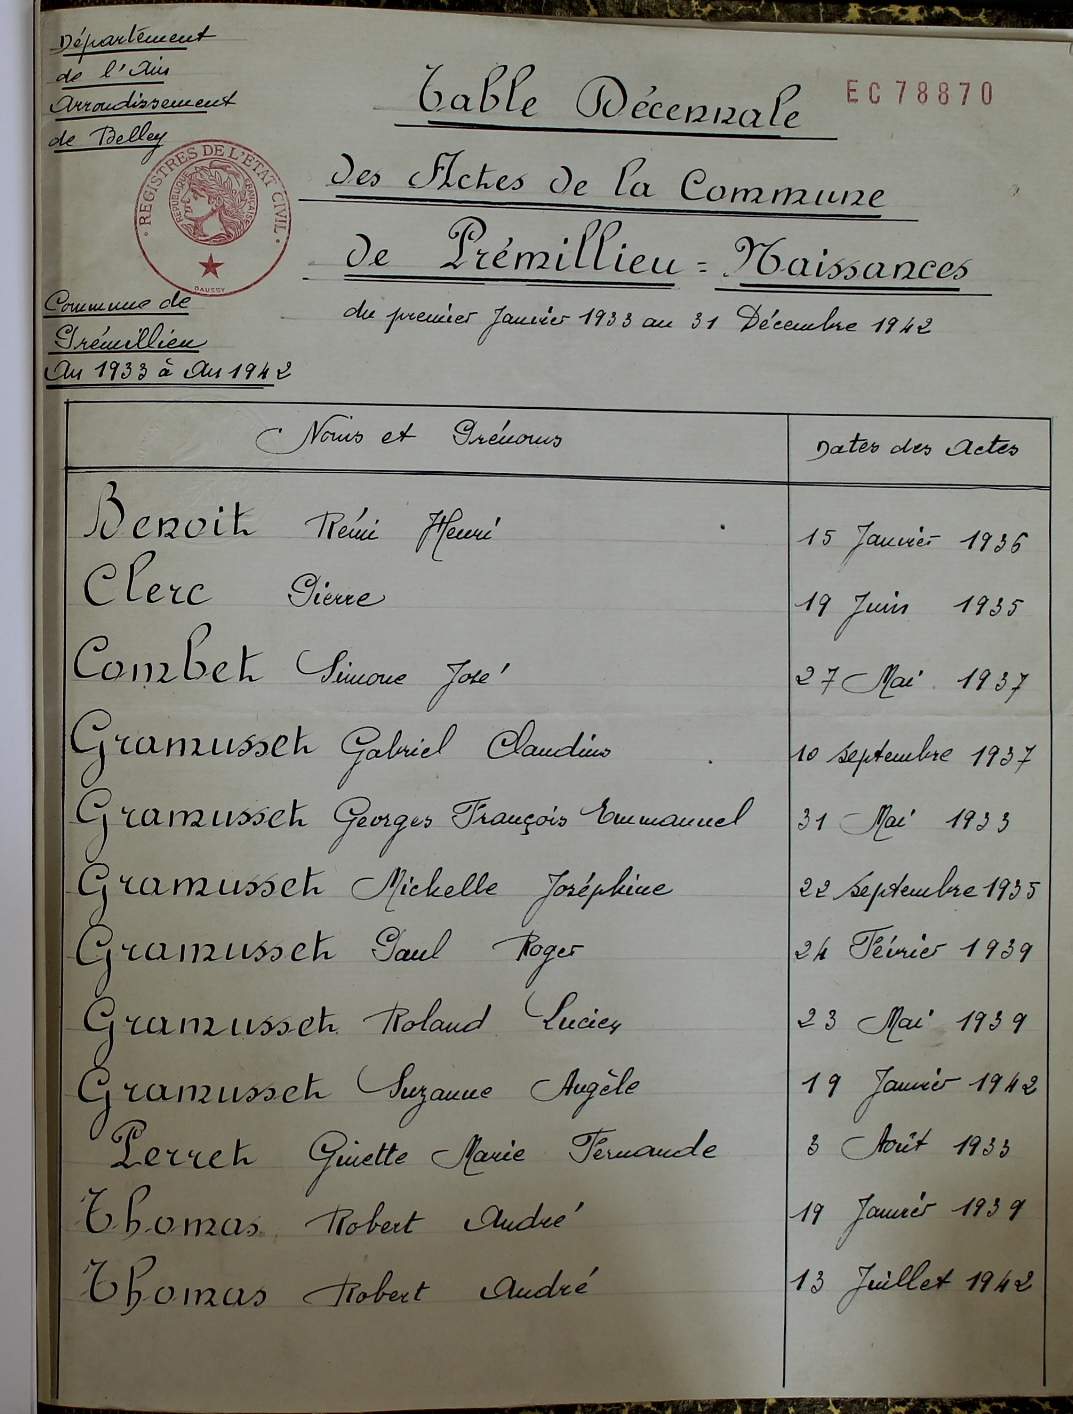 Département
de l'Ain
Arrondissement
de Belley
EC78870
Table Décennale
des Actes de la Commune
de Prémillieu = Naissances
du premier Janvier 1933 au 31 Décembre 1942
REGISTRES DE L'ETAT CIVIL
REPUBLIQUE FRANÇAISE
DAUSSY
Commune de
Prémillieu
An 1933 à An 1942
Noms et Prénoms Dates des Actes
Benoit Rémi Henri 15 Janvier 1936
Clerc Pierre 19 Juin 1935
Combet Simone José 27 Mai 1937
Gramusset Gabriel Claudius 10 septembre 1937
Gramusset Georges François Emmanuel 31 Mai 1933
Gramusset Mickelle Joséphine 22 septembre 1935
Gramusset Paul Roger 24 Février 1939
Gramusset Roland Lucien 23 Mai 1939
Gramusset Suzanne Angèle 19 Janvier 1942
Perret Ginette Marie Fernande 3 Août 1933
Thomas Robert André 19 Janvier 1939
Thomas Robert André 13 Juillet 1942